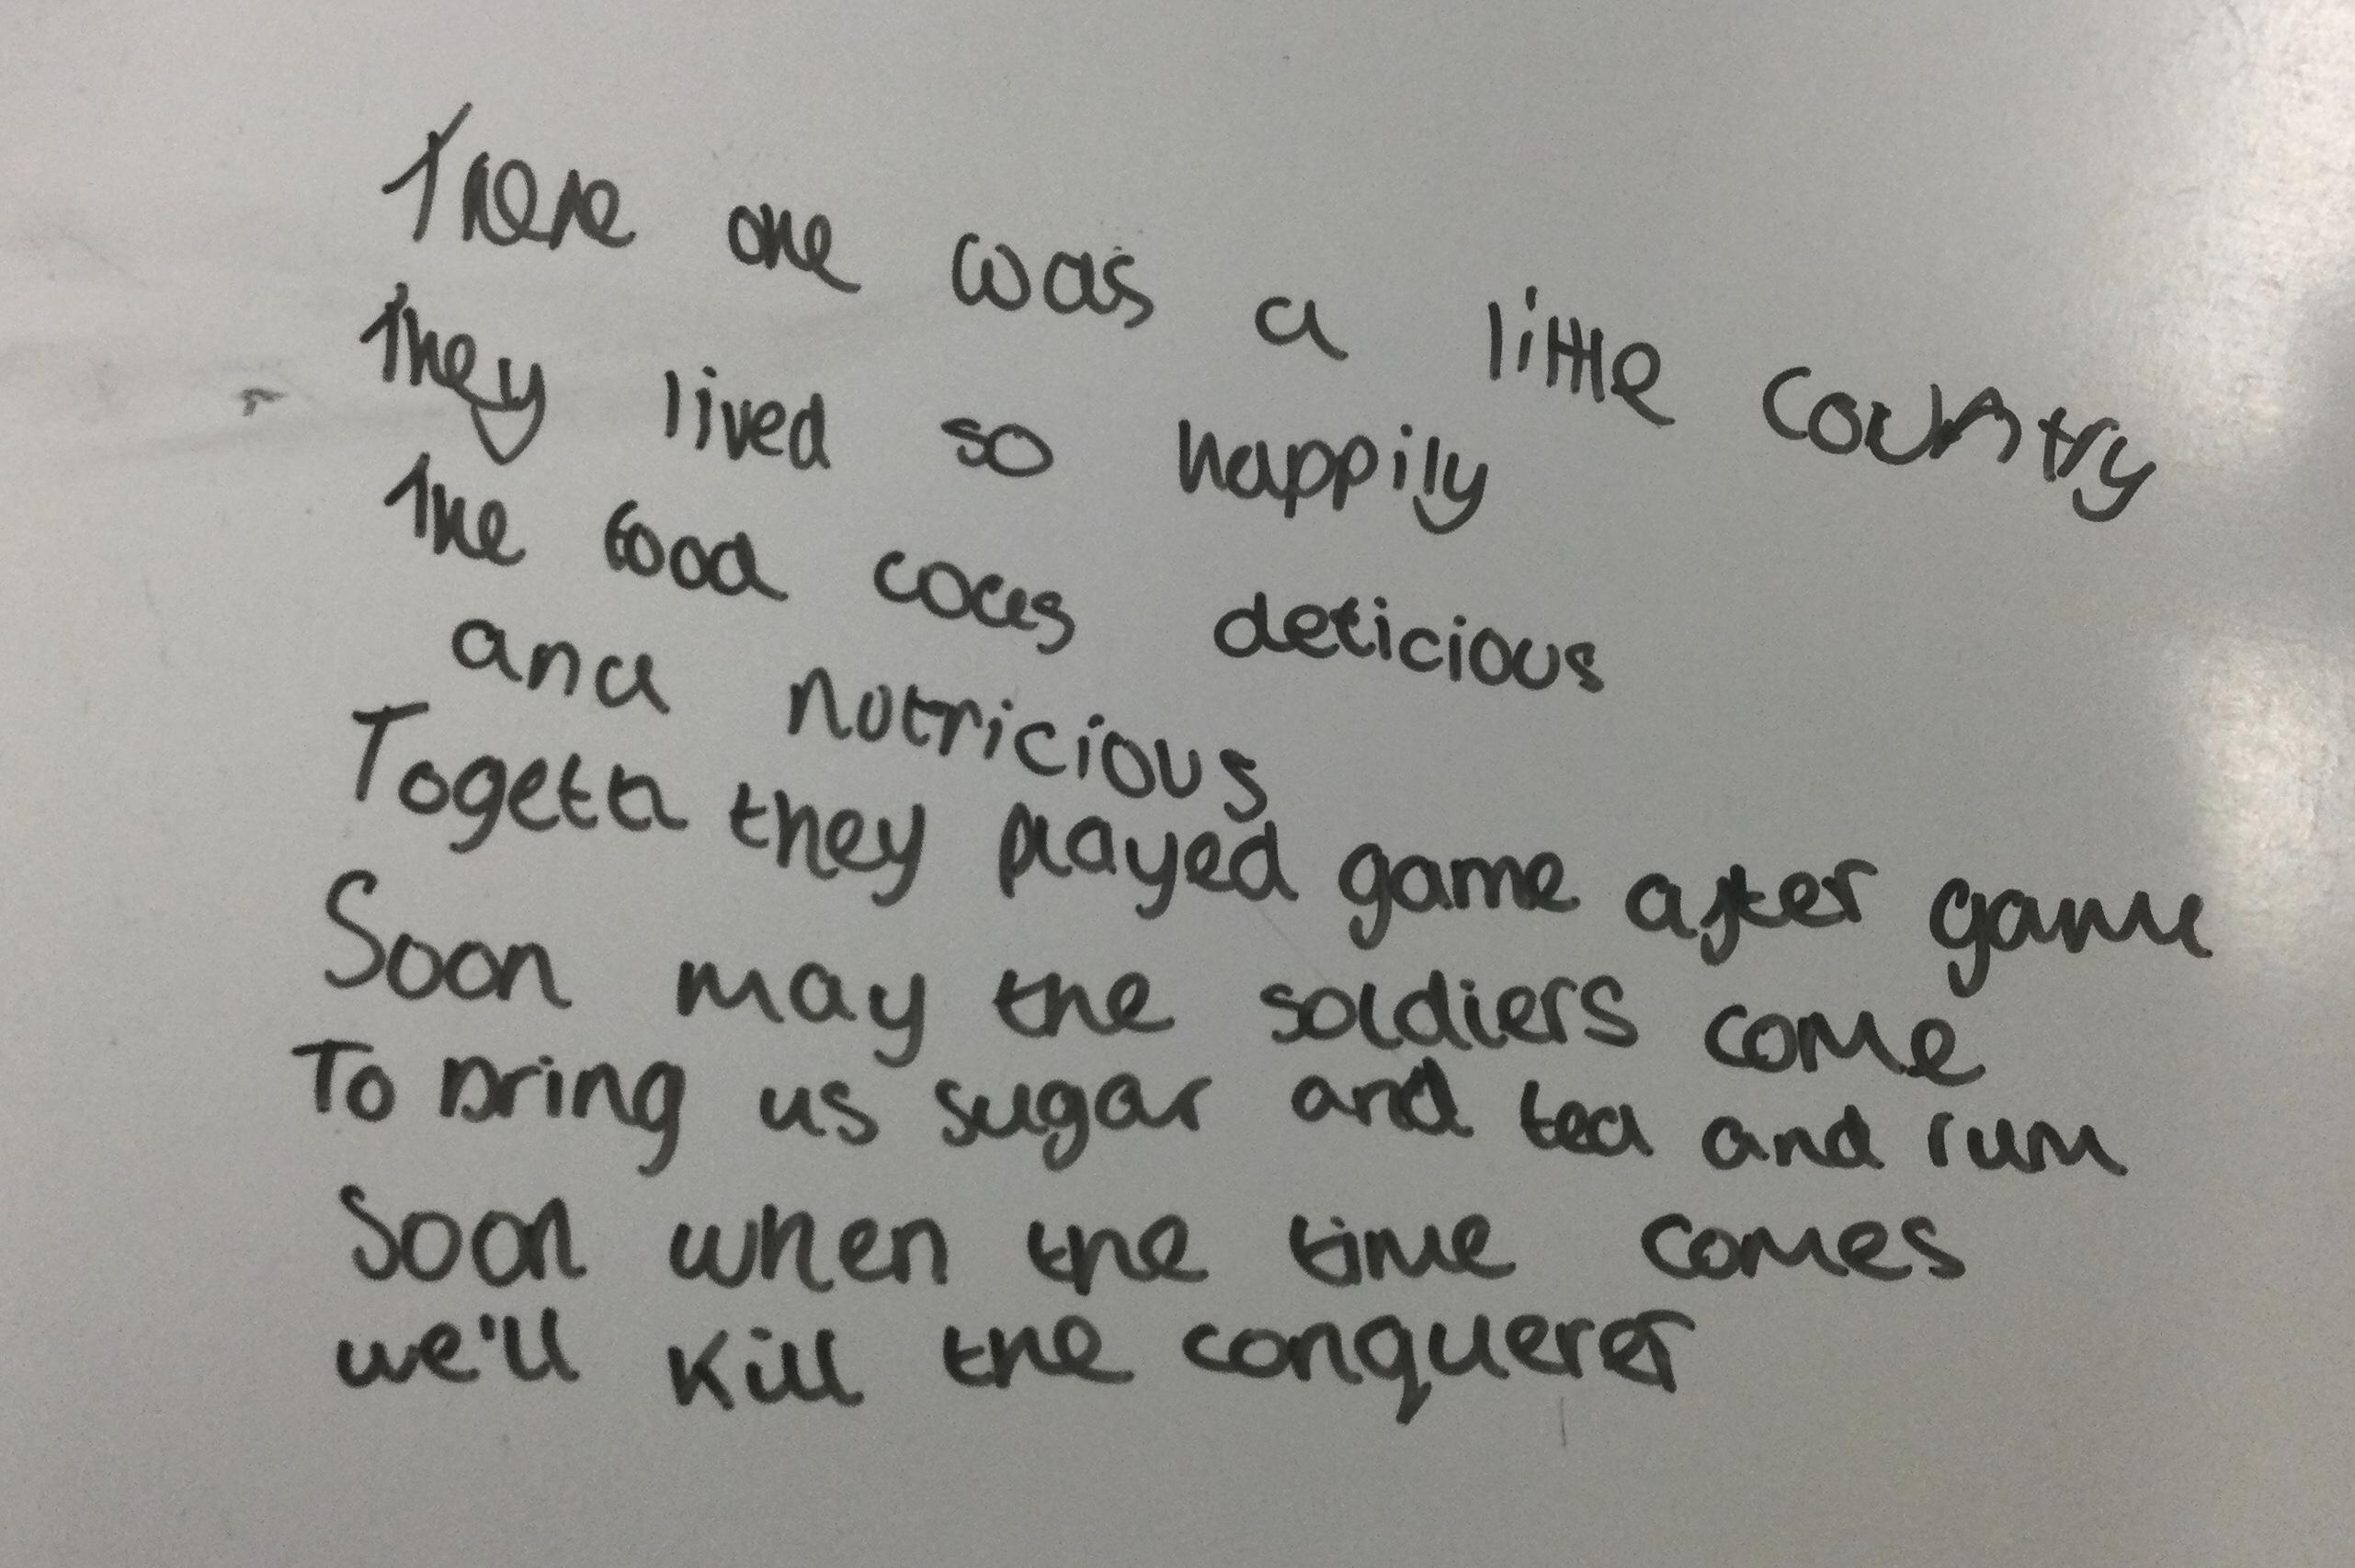 There one was a little country
They lived so happily
The food coces deticious
and nutricious
Togeth they played game after game
Soon may the soldiers come
To bring us sugar and tea and rum
Soon when the time comes
we'll kill the conquerer